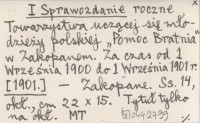 I Sprawozdanie roczne
Towarzystwa uczącej się mło-
dzieży polskiej „Pomoc Bratnia"
w Zakopanem. Za czas od 1
Września 1900 do 1 Września 1901 r.
[1901.] — Zakopane. Ss. 14,
okł., cm 22 x 15. Tytuł tylko
na okł. MT